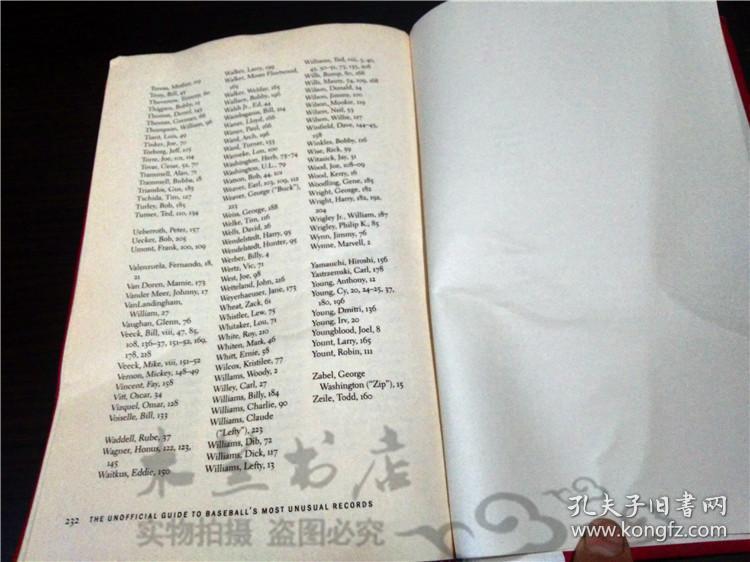 Torres, Mother, 113
Troy, Bill, 45
Thevenow, Tommy, 60
Thigpen, Bobby, 15
Thomas, Derrel, 145
Thomas, Gorman, 66
Thompson, William, 96
Tiant, Luis, 49
Tinker, Joe, 70
Torborg, Jeff, 105
Torre, Joe, 101, 114
Tovar, Cesar, 51, 70
Trammell, Alan, 71
Trammell, Bubba, 18
Triandos, Gus, 185
Tschida, Tim, 117
Turley, Bob, 185
Turner, Ted, 110, 154
Ueberroth, Peter, 157
Uecker, Bob, 205
Umont, Frank, 100, 109
Valenzuela, Fernando, 18,
21
Van Doren, Mamie, 173
Vander Meer, Johnny, 17
VanLandingham,
William, 27
Vaughan, Glenn, 76
Veeck, Bill, viii, 47, 85,
108, 136–37, 151–52, 169,
178, 218
Veeck, Mike, viii, 151–52
Vernon, Mickey, 148–49
Vincent, Fay, 158
Vitt, Oscar, 34
Vizquel, Omar, 128
Voiselle, Bill, 133
Waddell, Rube, 37
Wagner, Honus, 122, 123,
145
Waitkus, Eddie, 150
Walker, Larry, 199
Walker, Moses Fleetwood,
165
Walker, Welday, 165
Wallace, Bobby, 196
Walsh Jr., Ed, 44
Wambsganss, Bill, 214
Waner, Lloyd, 166
Waner, Paul, 166
Ward, Arch, 196
Ward, Turner, 153
Warneke, Lon, 100
Washington, Herb, 73–74
Washington, U.L., 79
Watson, Bob, 44, 101
Weaver, Earl, 103, 109, 112
Weaver, George ("Buck"),
223
Weiss, George, 188
Welke, Tim, 116
Wells, David, 26
Wendelstedt, Harry, 95
Wendelstedt, Hunter, 95
Werber, Billy, 4
Wertz, Vic, 71
West, Joe, 98
Wetteland, John, 216
Weyerhaeuser, Jane, 173
Wheat, Zack, 61
Whistler, Lew, 75
Whitaker, Lou, 71
White, Roy, 210
Whiten, Mark, 46
Whitt, Ernie, 58
Wilcox, Kristilee, 77
Willams, Woody, 2
Willey, Carl, 27
Williams, Billy, 184
Williams, Charlie, 90
Williams, Claude
("Lefty"), 223
Williams, Dib, 72
Williams, Dick, 117
Williams, Lefty, 13
Williams, Ted, viii, 5, 40,
42, 50–51, 73, 155, 206
Wills, Bump, 80, 168
Wills, Maury, 74, 109, 168
Wilson, Donald, 24
Wilson, Jimmy, 100
Wilson, Mookie, 119
Wilson, Neil, 53
Wilson, Willie, 127
Winfield, Dave, 144–45,
158
Winkles, Bobby, 116
Wise, Rick, 59
Witasick, Jay, 31
Wood, Joe, 108–09
Wood, Kerry, 16
Woodling, Gene, 185
Wright, George, 182
Wright, Harry, 182, 192,
204
Wrigley Jr., William, 187
Wrigley, Philip K., 85
Wynn, Jimmy, 76
Wynne, Marvell, 2
Yamauchi, Hiroshi, 156
Yastrzemski, Carl, 178
Young, Anthony, 12
Young, Cy, 20, 24–25, 37,
180, 196
Young, Dmitri, 136
Young, Irv, 20
Youngblood, Joel, 8
Yount, Larry, 165
Yount, Robin, 111
Zabel, George
Washington ("Zip"), 15
Zeile, Todd, 160
232 THE UNOFFICIAL GUIDE TO BASEBALL'S MOST UNUSUAL RECORDS
木兰书店
实物拍摄 盗图必究
孔夫子旧书网
www.kongfz.com